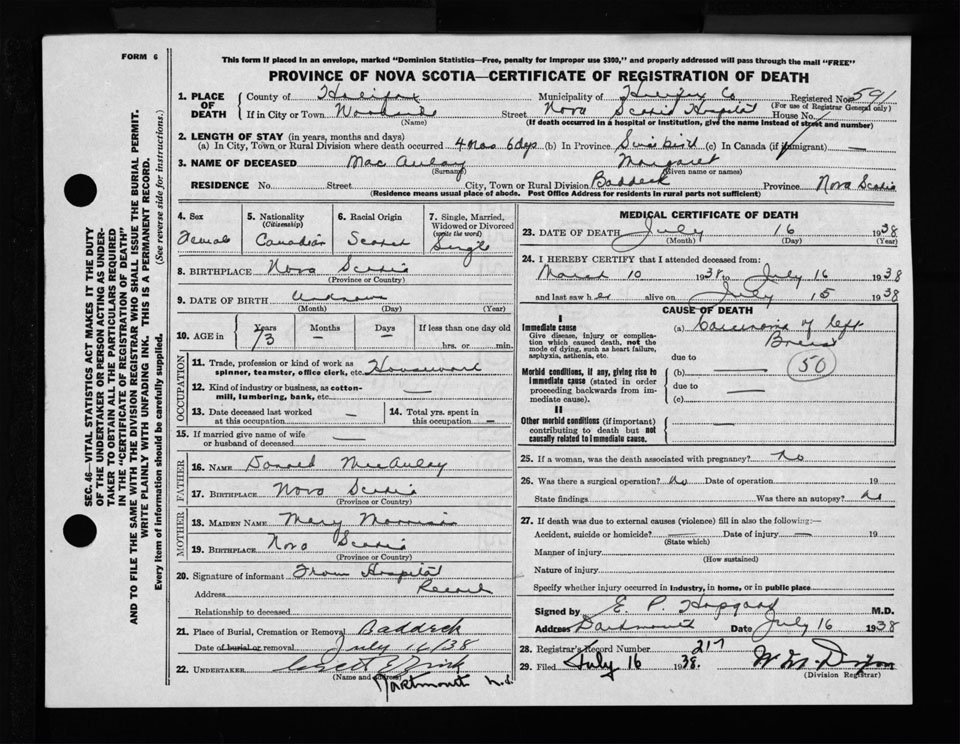 FORM 6
This form if placed in an envelope, marked "Dominion Statistics—Free, penalty for improper use $300," and properly addressed will pass through the mail "FREE"
PROVINCE OF NOVA SCOTIA—CERTIFICATE OF REGISTRATION OF DEATH
1. PLACE OF DEATH County of Halifax Municipality of Halifax Co Registered No. 591
(For use of Registrar General only)
If in City or Town Woodside Street Nova Scotia Hospital House No.
(Name) (If death occurred in a hospital or institution, give the name instead of street and number)
2. LENGTH OF STAY (in years, months and days)
(a) In City, Town or Rural Division where death occurred 4 mos 6 dys (b) In Province Since birth (c) In Canada (if immigrant) —
3. NAME OF DECEASED Mac Aulay Margaret
(Surname) (Given name or names)
RESIDENCE No. Street City, Town or Rural Division Baddeck Province Nova Scotia
(Residence means usual place of abode. Post Office Address for residents in rural parts not sufficient)
4. Sex Female
5. Nationality (Citizenship) Canadian
6. Racial Origin Scotch
7. Single, Married, Widowed or Divorced (write the word) Single
8. BIRTHPLACE Nova Scotia
(Province or Country)
9. DATE OF BIRTH unknown
(Month) (Day) (Year)
10. AGE in Years 73 Months — Days — If less than one day old
hrs. or min.
OCCUPATION
11. Trade, profession or kind of work as spinner, teamster, office clerk, etc. Housework
12. Kind of industry or business, as cotton-mill, lumbering, bank, etc. —
13. Date deceased last worked at this occupation —
14. Total yrs. spent in this occupation —
15. If married give name of wife or husband of deceased —
FATHER
16. NAME Donald MacAulay
17. BIRTHPLACE Nova Scotia
(Province or Country)
MOTHER
18. MAIDEN NAME Mary Morrison
19. BIRTHPLACE Nova Scotia
(Province or Country)
20. Signature of informant From Hospital
Address Record
Relationship to deceased
21. Place of Burial, Cremation or Removal Baddeck
Date of burial or removal July 16/38
22. UNDERTAKER
(Name and address)
Dartmouth N.S.
MEDICAL CERTIFICATE OF DEATH
23. DATE OF DEATH July 16 1938
(Month) (Day) (Year)
24. I HEREBY CERTIFY that I attended deceased from:
March 10 1938 to July 16 1938
and last saw her alive on July 15 1938
CAUSE OF DEATH
I
Immediate cause
Give disease, injury or complication which caused death, not the mode of dying, such as heart failure, asphyxia, asthenia, etc.
(a) Carcinoma of left Breast
due to
50
Morbid conditions, if any, giving rise to immediate cause (stated in order proceeding backwards from immediate cause).
(b) —
due to —
(c)
II
Other morbid conditions (if important) contributing to death but not causally related to immediate cause. —
25. If a woman, was the death associated with pregnancy? no
26. Was there a surgical operation? no Date of operation 19
State findings Was there an autopsy? no
27. If death was due to external causes (violence) fill in also the following:—
Accident, suicide or homicide? — Date of injury — 19
(State which)
Manner of injury
(How sustained)
Nature of injury
Specify whether injury occurred in industry, in home, or in public place
Signed by E. P. Hopgood M.D.
Address Dartmouth Date July 16 1938
28. Registrar's Record Number 217
29. Filed July 16 1938.
(Division Registrar)
SEC. 46—VITAL STATISTICS ACT MAKES IT THE DUTY
OF THE UNDERTAKER OR PERSON ACTING AS UNDERTAKER
TO OBTAIN ALL THE PARTICULARS REQUIRED
IN THE "CERTIFICATE OF REGISTRATION OF DEATH"
AND TO FILE THE SAME WITH THE DIVISION REGISTRAR WHO SHALL ISSUE THE BURIAL PERMIT.
WRITE PLAINLY WITH UNFADING INK. THIS IS A PERMANENT RECORD.
Every item of information should be carefully supplied. (See reverse side for instructions.)